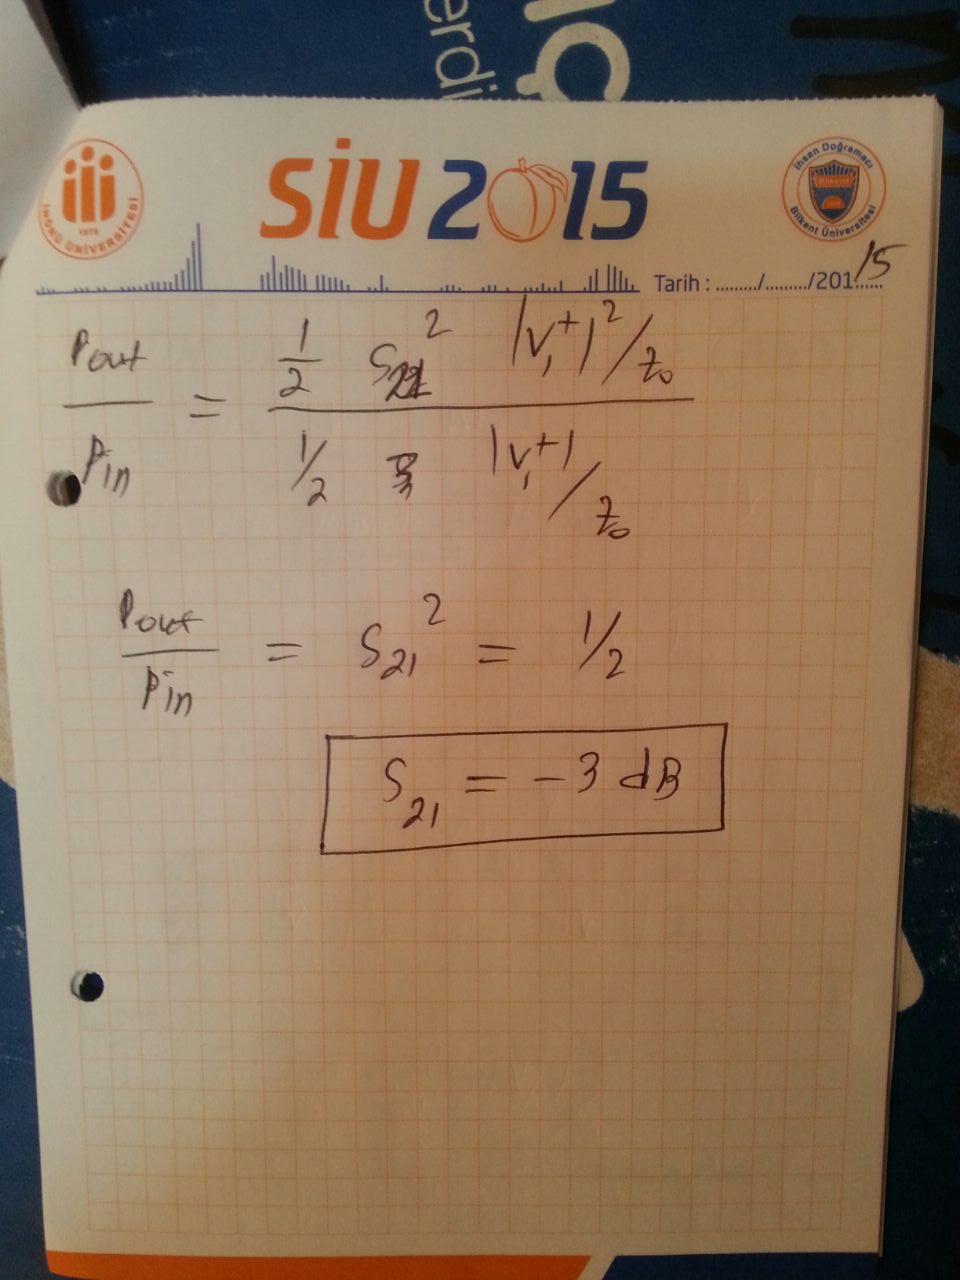 erdi
İNÖNÜ ÜNİVERSİTESİ
1975
SİU 2015
İhsan Doğramacı
Bilkent
Bilkent Üniversitesi
Tarih : ......../......../2015......
Pout / Pin = 1/2 S21² |V1⁺|²/Z0 / 1/2 |V1⁺|/Z0
Pout / Pin = S21² = 1/2
S21 = -3 dB